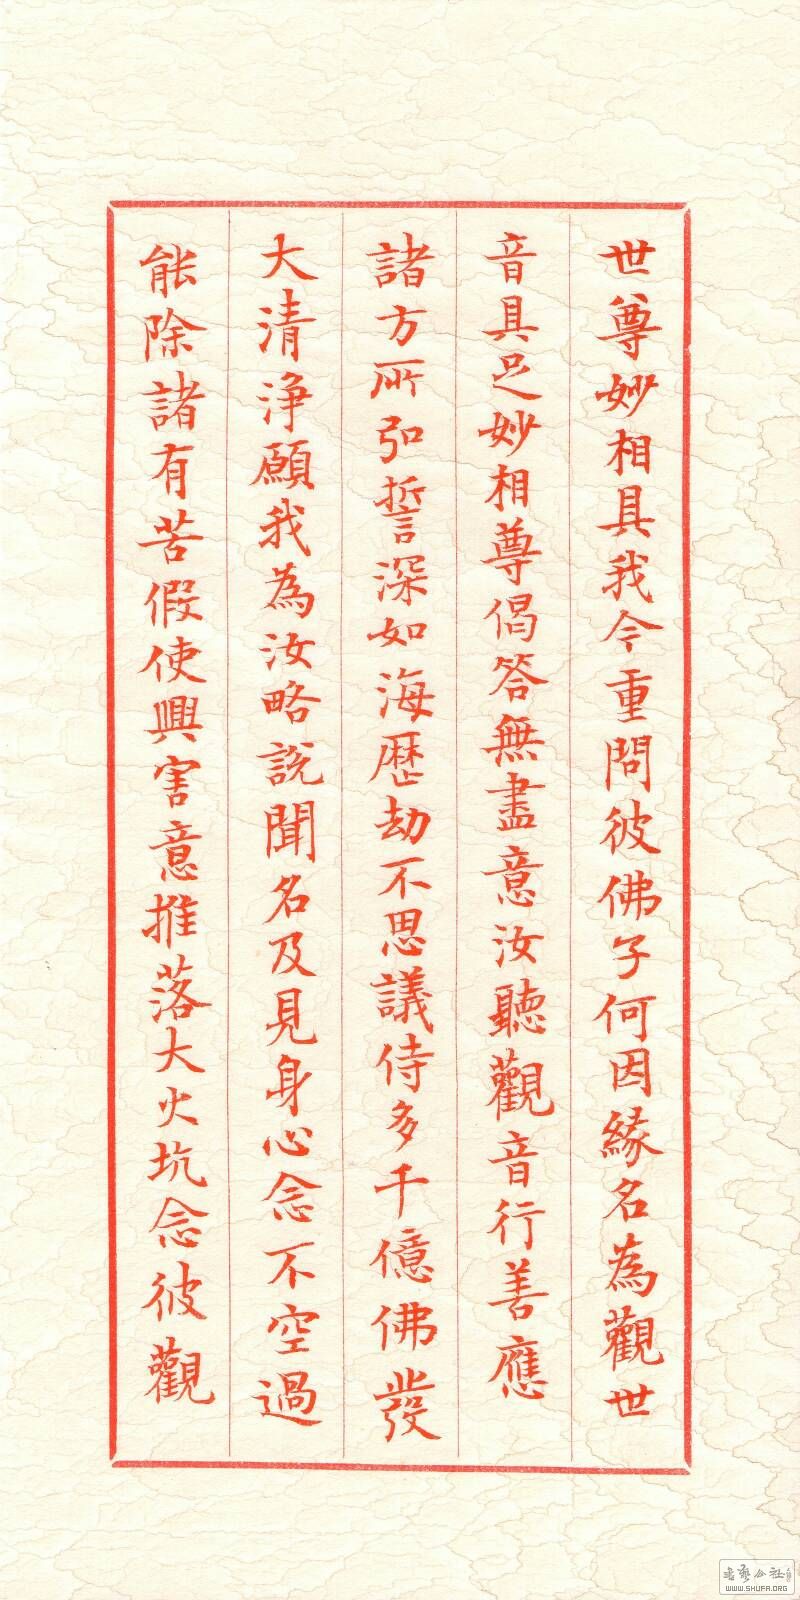 世尊妙相具我今重問彼佛子何因緣名為觀世
音具足妙相尊偈答無盡意汝聽觀音行善應
諸方所弘誓深如海歷劫不思議侍多千億佛發
大清淨願我為汝略說聞名及見身心念不空過
能除諸有苦假使興害意推落大火坑念彼觀
WWW.SHUFA.ORG